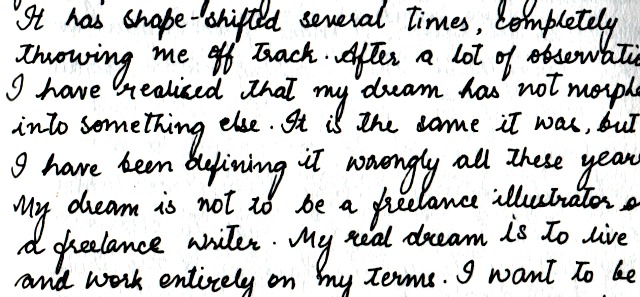 It has shape-shifted several times, completely
throwing me off track. After a lot of observatio
I have realised that my dream has not morphe
into something else. It is the same it was, but
I have been defining it wrongly all these year
My dream is not to be a freelance illustrator o
a freelance writer. My real dream is to live
and work entirely on my terms. I want to be